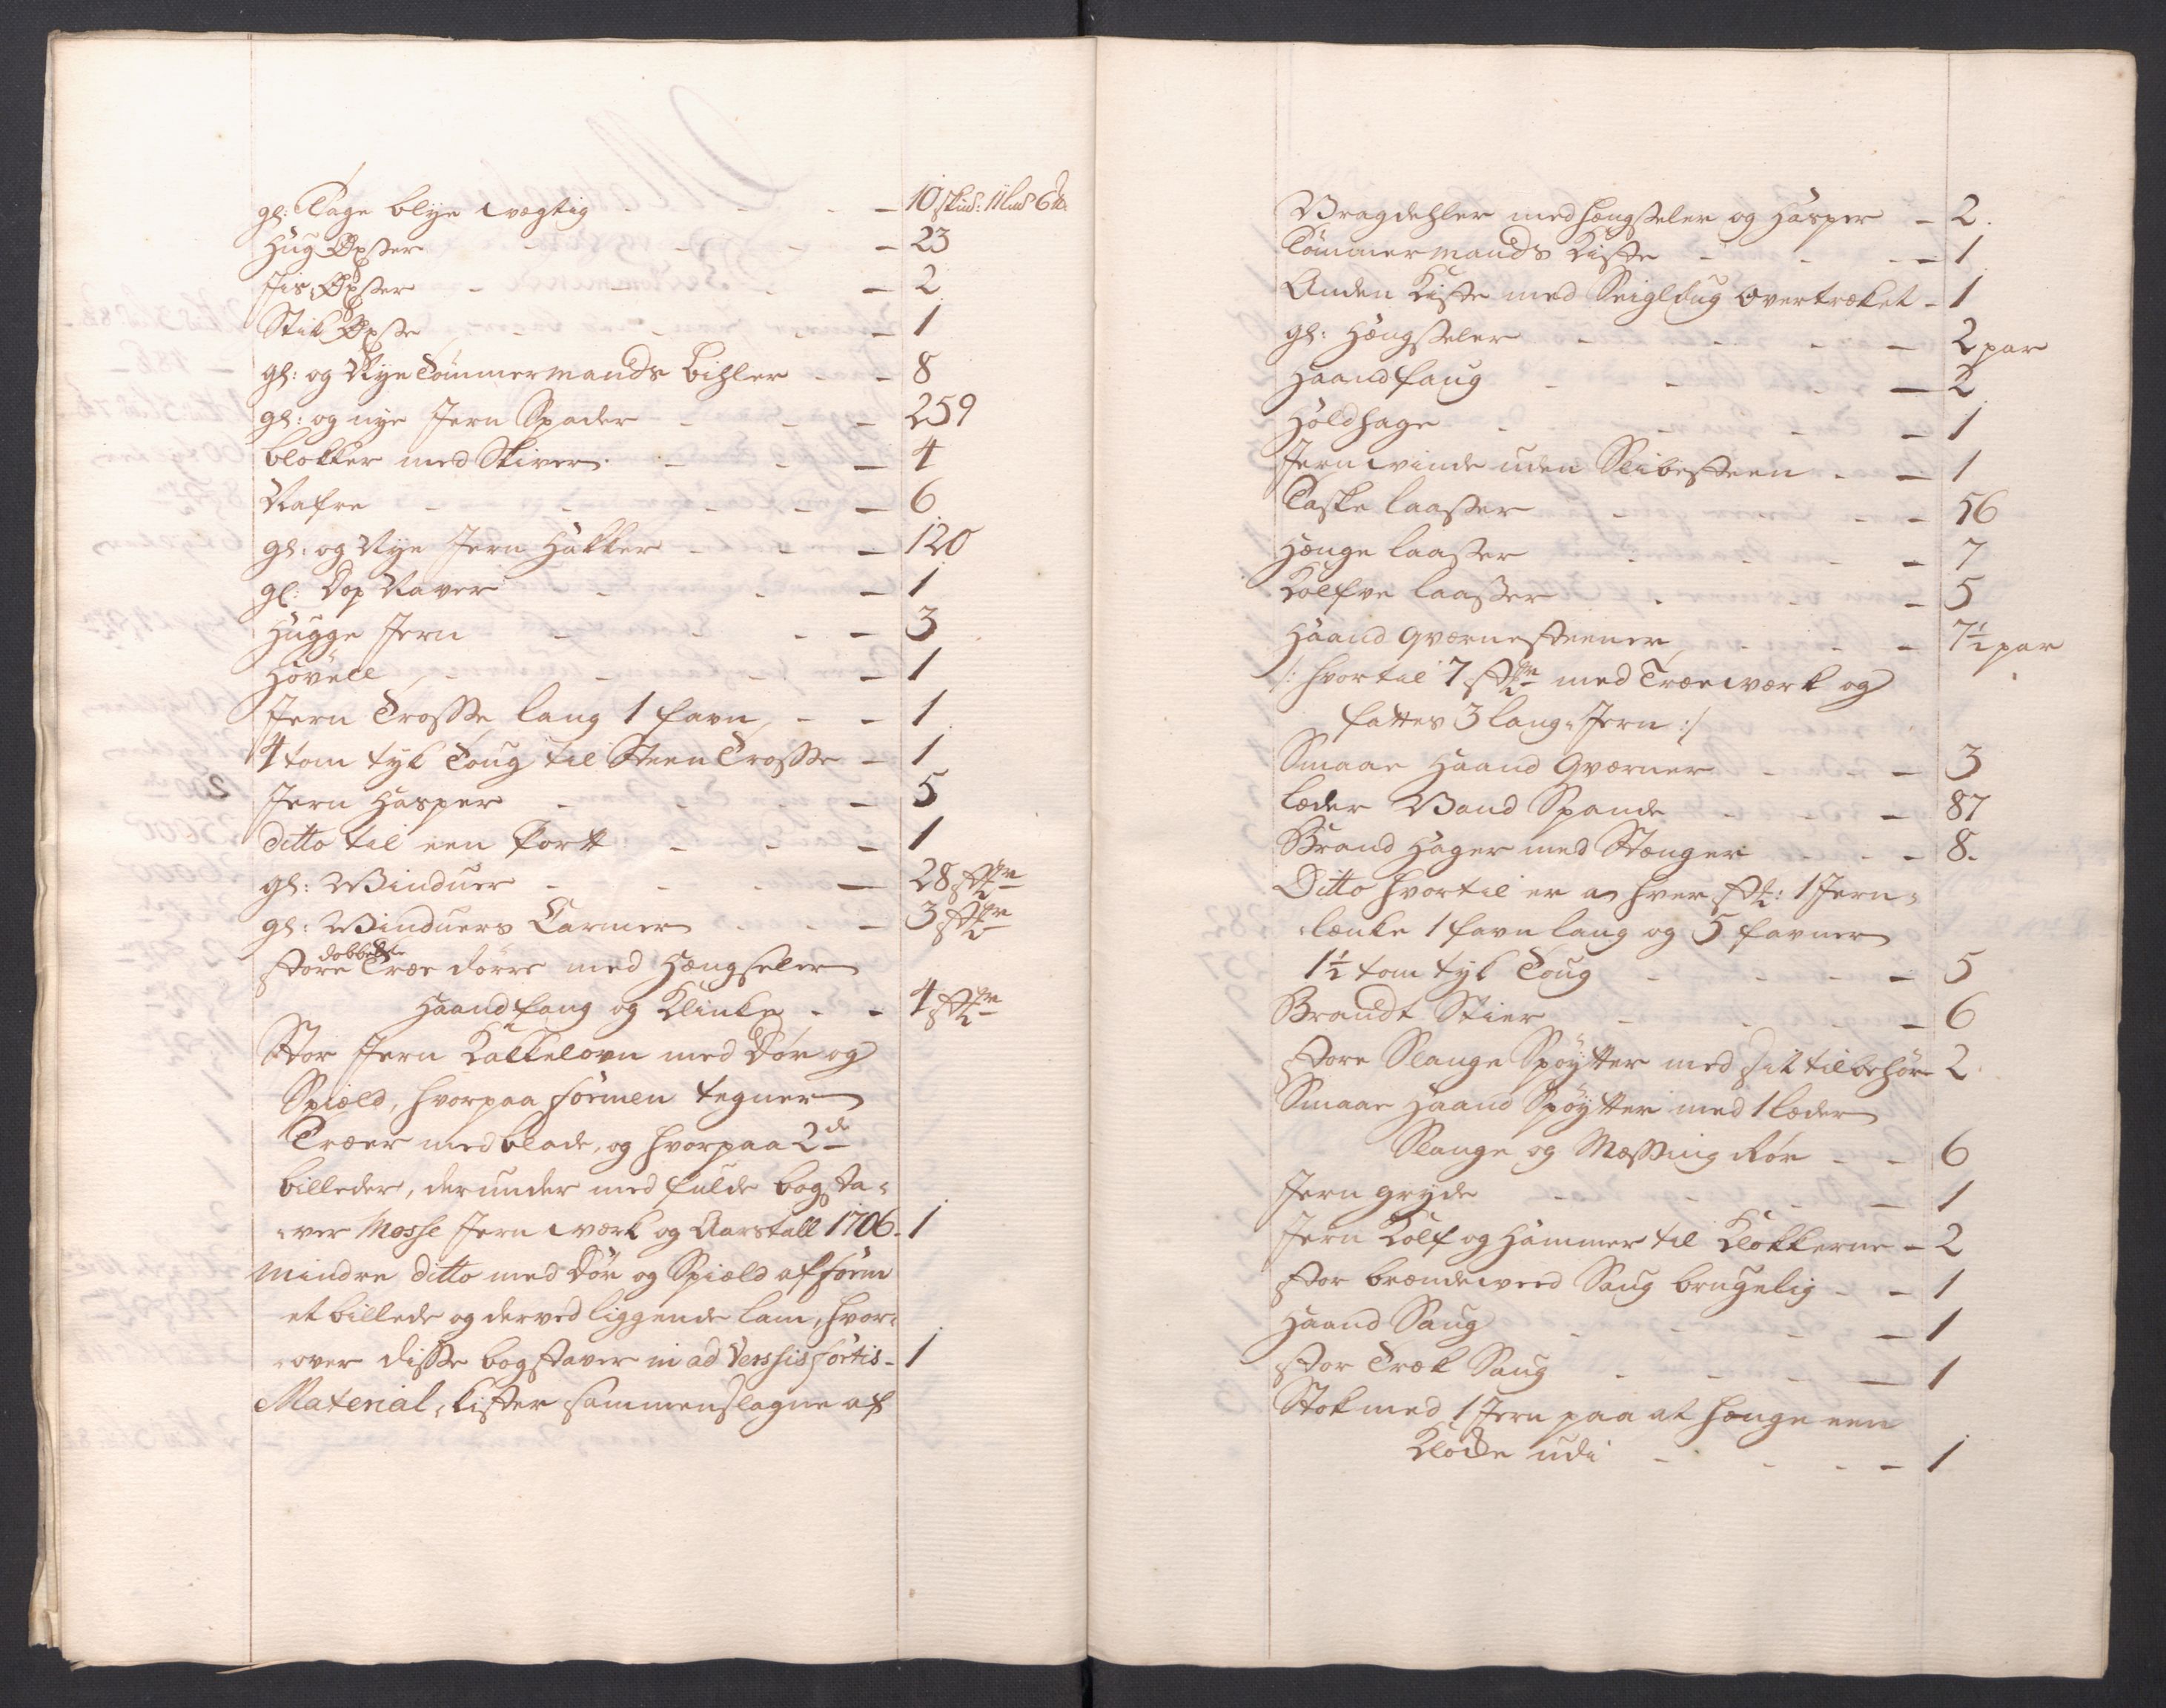 gl: Tage blye wegtig - - - 10 skud: 11 lud 6 ℔
Hug Øxser - - - 23
Jis Øxser - - - 2
Stik Øxse - - - 1
gl: og Nye Tømmermands Bihler - - 8
gl: og nye Jern Spader - - - 259
blokker med Skiver - - - 4
Nafre - - - 6
gl: og Nye Jern Hakker - - - 120
gl: Dop Naver - - - 1
Hugge Jern - - - 3
Høvell - - - 1
Jern Trosse lang 1 favn - - 1
4 tom tyk Toug til Steen Trosse - 1
Jern Hasper - - - 5
ditto til een Port - - - 1
gl: Winduer - - - 28 stkr
gl: Winduers Carmer - - - 3 stkr
dobbelte
store Træe dørre med Hængseler
Haandfang og Klinke - - 4 stkr
Stor Jern Kakkelovn med Dør og
Spield, hvorpaa formen tegner
Træer med blade, og hvorpaa 2de
billeder, derunder med fulde bogsta-
ver Mosse Jernwærk og Aarstall 1706 - 1
Mindre ditto med Dør og Spield af form
et billede og derved liggende lam, hvor-
over disse bogstaver in ad Verssis fortis - 1
Material, kister sammenslagne af
Wragdehler med hængseler og Hasper - 2
Tømmermands Kiste - - - 1
Anden Kiste med Seigldug overtræket - 1
gl: Hængseler - - - 2 par
Haandfang - - - 2
Holdhage - - - 1
Jernwinde uden Slibesteen - - 1
Taske laasser - - - 56
Hænge laasser - - - 7
Kolfve laasser - - - 5
Haand Qværnesteener - - - 7½ par
/: hvortil 7 stkr med Træewærk og
fattes 3 lang Jern :/
Smaae Haand Qværner - - - 3
læder Wand Spande - - - 87
Brand Hager med Stænger - - - 8
Ditto hvortil er a hver stk: 1 Jern-
lænke 1 favn lang og 5 favner
1½ tom tyk Toug - - - 5
Brandt Stier - - - 6
store Slange Spøytter med sit tilbehør 2
Smaae Haand Spøytter med 1 læder
Slange og Messing Rør - - 6
Jern gryde - - - 1
Jern Kolf og Hammer til Klokkerne - 2
stor brændeweed Saug brugelig - - 1
Haand Saug - - - 1
stor Træk Saug - - - 1
Stok med 1 Jern paa at hænge een
Klocke udi - - - 1